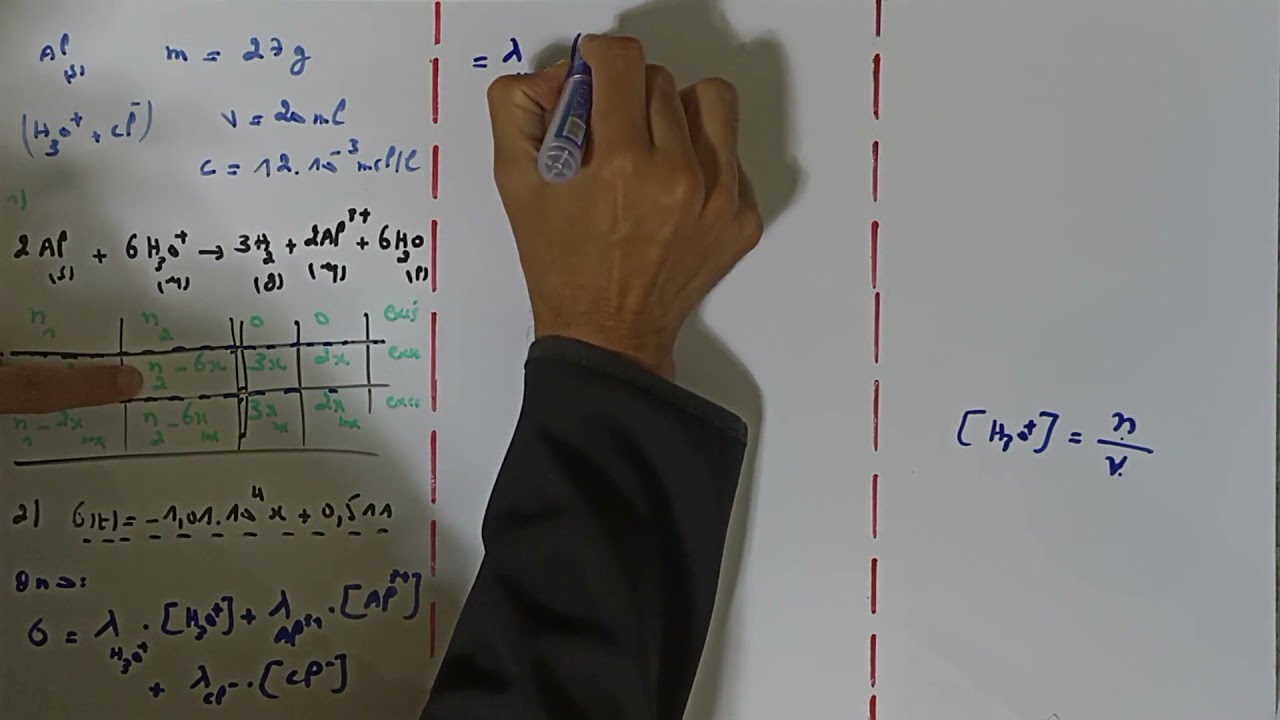 Al (s) m = 27 g
(H3O+ + Cl-) V = 20 ml
C = 12.10^-3 mol/l
1)
2Al (s) + 6H3O+ (aq) → 3H2 (g) + 2Al^3+ (aq) + 6H2O (l)
n1 n2 0 0
n2 - 6x 3x 2x
n1 - 2x max n2 - 6x max 3x max 2x max
2) σ(t) = -1,01.10^4 x + 0,511
σ = λ H3O+ . [H3O+] + λ Al^3+ . [Al^3+]
+ λ Cl- . [Cl-]
= λ
[H3O+] = n/V